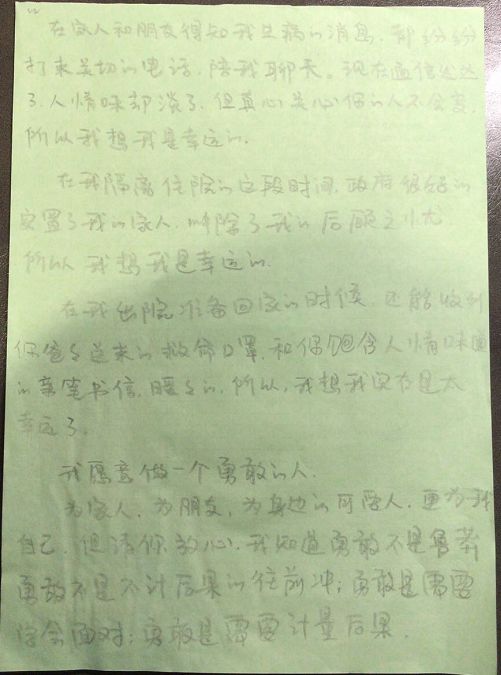 在家人和朋友得知我生病的消息，都纷纷
打来关切的电话，陪我聊天。现在通信发达
了，人情味却淡了，但真心关心你的人不会变，
所以我想我是幸运的。
在我隔离住院的这段时间，政府很好的
安置了我的家人，解除了我的后顾之忧，
所以我想我是幸运的。
在我出院准备回家的时候，还能收到
你爸爸送来的救命口罩，和你饱含人情味道
的亲笔书信，暖暖的，所以，我想我实在是太
幸运了。
我愿意做一个勇敢的人。
为家人，为朋友，为身边的可爱人，更为我
自己，但请你放心，我知道勇敢不是鲁莽
勇敢不是不计后果的往前冲；勇敢是需要
学会面对；勇敢是需要计量后果。